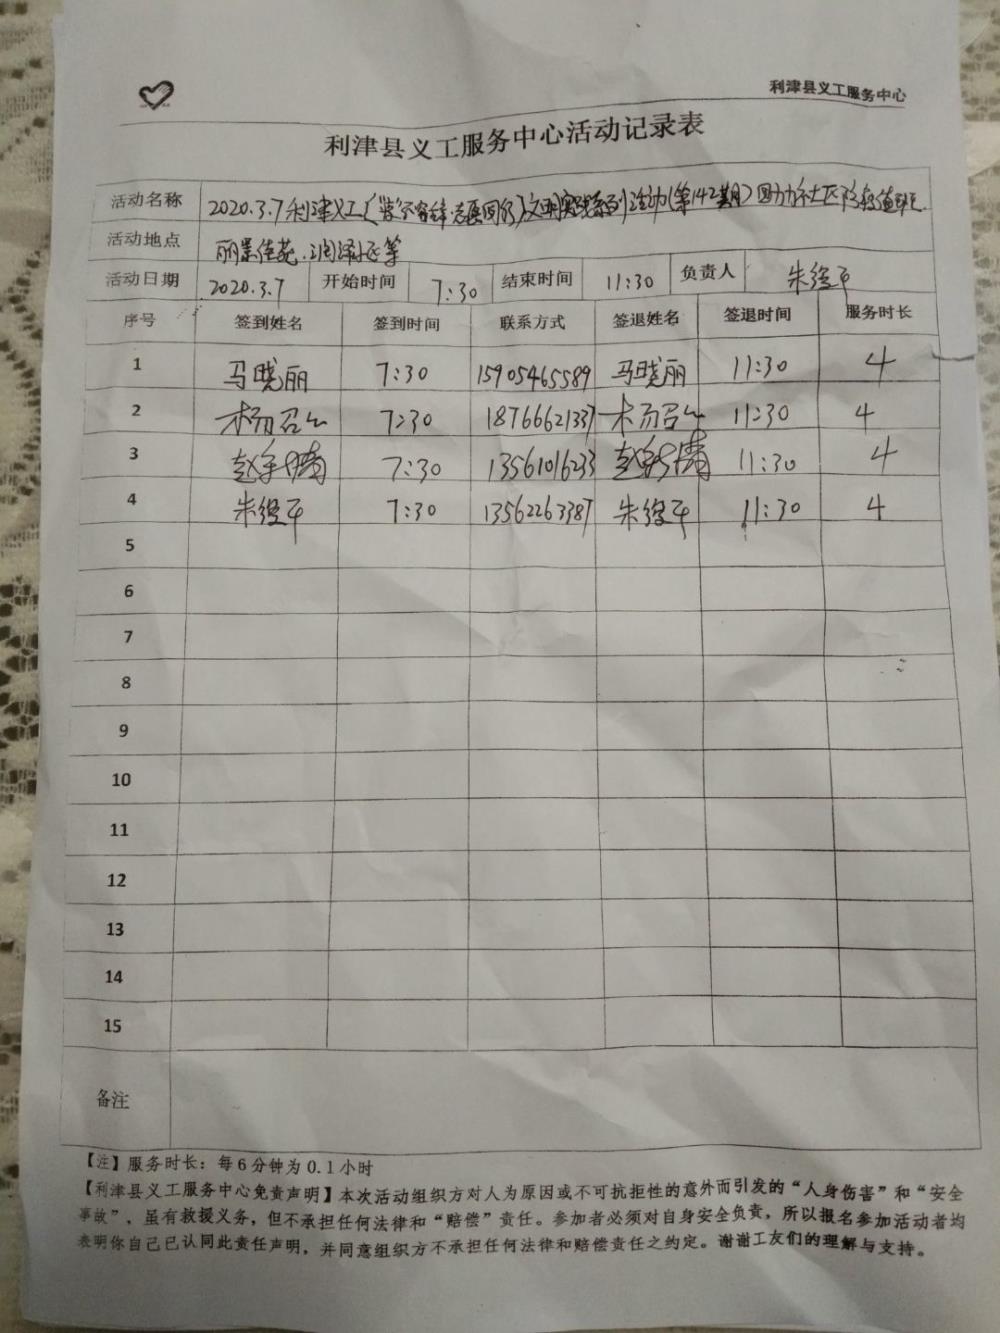 利津县义工服务中心
利津县义工服务中心活动记录表
活动名称 2020.3.7利津义工 志愿同行 文明实践系列活动(第142期) 社区 值班
活动地点 丽景佳苑、等
活动日期 2020.3.7 开始时间 7:30 结束时间 11:30 负责人 朱
序号 签到姓名 签到时间 联系方式 签退姓名 签退时间 服务时长
1 马晓丽 7:30 15905465589 马晓丽 11:30 4
2 杨召 7:30 18766621337 杨召 11:30 4
3 赵 7:30 13561016233 赵 11:30 4
4 朱 7:30 13562263387 朱 11:30 4
5
6
7
8
9
10
11
12
13
14
15
备注
【注】服务时长：每6分钟为0.1小时
【利津县义工服务中心免责声明】本次活动组织方对人为原因或不可抗拒性的意外而引发的“人身伤害”和“安全
事故”，虽有救援义务，但不承担任何法律和“赔偿”责任。参加者必须对自身安全负责，所以报名参加活动者均
表明你自己已认同此责任声明，并同意组织方不承担任何法律和赔偿责任之约定。谢谢工友们的理解与支持。